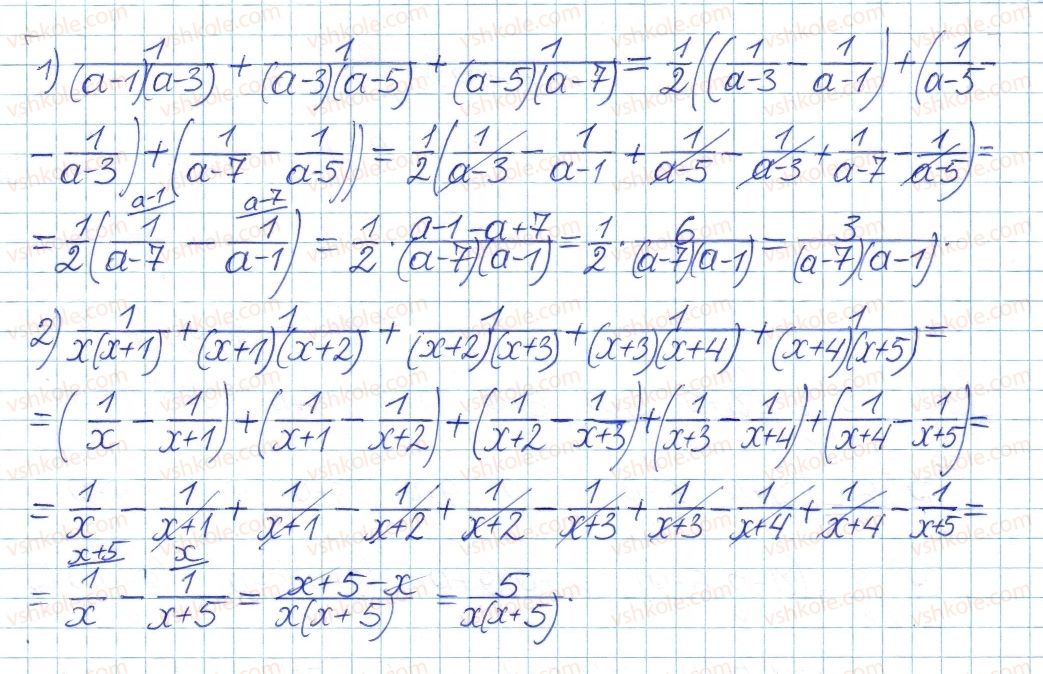 1) 1/((a-1)(a-3)) + 1/((a-3)(a-5)) + 1/((a-5)(a-7)) = 1/2((1/(a-3) - 1/(a-1)) + (1/(a-5) -
- 1/(a-3)) + (1/(a-7) - 1/(a-5))) = 1/2(1/(a-3) - 1/(a-1) + 1/(a-5) - 1/(a-3) + 1/(a-7) - 1/(a-5)) =
a-1 a-7
= 1/2(1/(a-7) - 1/(a-1)) = 1/2 · (a-1-a+7)/((a-7)(a-1)) = 1/2 · 6/((a-7)(a-1)) = 3/((a-7)(a-1)).
2) 1/(x(x+1)) + 1/((x+1)(x+2)) + 1/((x+2)(x+3)) + 1/((x+3)(x+4)) + 1/((x+4)(x+5)) =
= (1/x - 1/(x+1)) + (1/(x+1) - 1/(x+2)) + (1/(x+2) - 1/(x+3)) + (1/(x+3) - 1/(x+4)) + (1/(x+4) - 1/(x+5)) =
= 1/x - 1/(x+1) + 1/(x+1) - 1/(x+2) + 1/(x+2) - 1/(x+3) + 1/(x+3) - 1/(x+4) + 1/(x+4) - 1/(x+5) =
x+5 x
= 1/x - 1/(x+5) = (x+5-x)/(x(x+5)) = 5/(x(x+5)).
vshkole.com